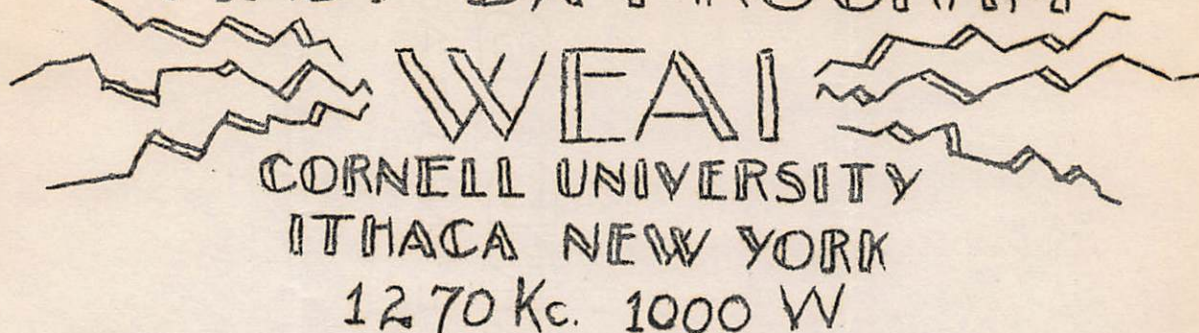 WEAI
CORNELL UNIVERSITY
ITHACA NEW YORK
1270 Kc. 1000 W